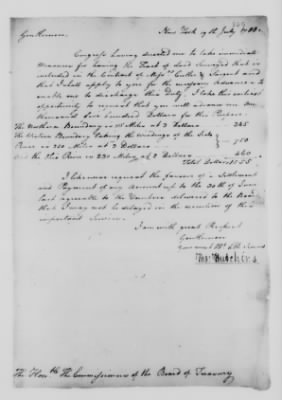 New York 19th July 1788.
Gentlemen
Congress having directed me to take immediate
Measures for having the Tract of Land Surveyed that is
included in the Contract of Messrs Cutler & Sargent and
that I shall apply to you for the necessary Advance to
enable me to discharge this Duty. I take this earliest
opportunity to request that you will advance me One
thousand hundred Dollars for this Purpose.
The Northern Boundary Miles at 3 Dollars 345
The Western Boundary taking the windings of the Scioto
River is 250 Miles at 3 Dollars 750
And the Ohio River is 230 Miles at 2 Dollars 460
Total Dollars 1555
I likewise request the favour of a Settlement
and Payment of my Account up to the 30th of June
last agreeable to the Vouchers delivered to the Board
that I may not be delayed in the execution of this
important Service.
I am with great Respect
Gentlemen
your most Obt & Hble Servant
Tho: Hutchins
The Honble The Commissioners of the Board of Treasury